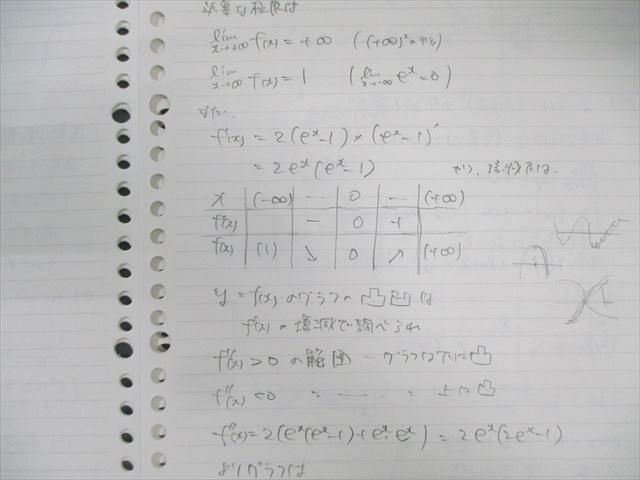 必要な極限は
lim x→+∞ f(x) = +∞ (
lim x→-∞ f(x) = 1 ( lim x→-∞ e^x = 0 )
また、
f'(x) = 2(e^x-1) × (e^x-1)'
= 2e^x(e^x-1) より、増減表は
x (-∞) … 0 … (+∞)
f'(x) - 0 +
f(x) (1) ↘ 0 ↗ (+∞)
y = f(x) のグラフの凸凹は
f'(x) の増減で調べられ
f''(x) > 0 の範囲 ー グラフは下に凸
f''(x) < 0 〃 ー 〃 上に凸
f''(x) = 2(e^x(e^x-1)+e^x・e^x) = 2e^x(2e^x-1)
よりグラフは